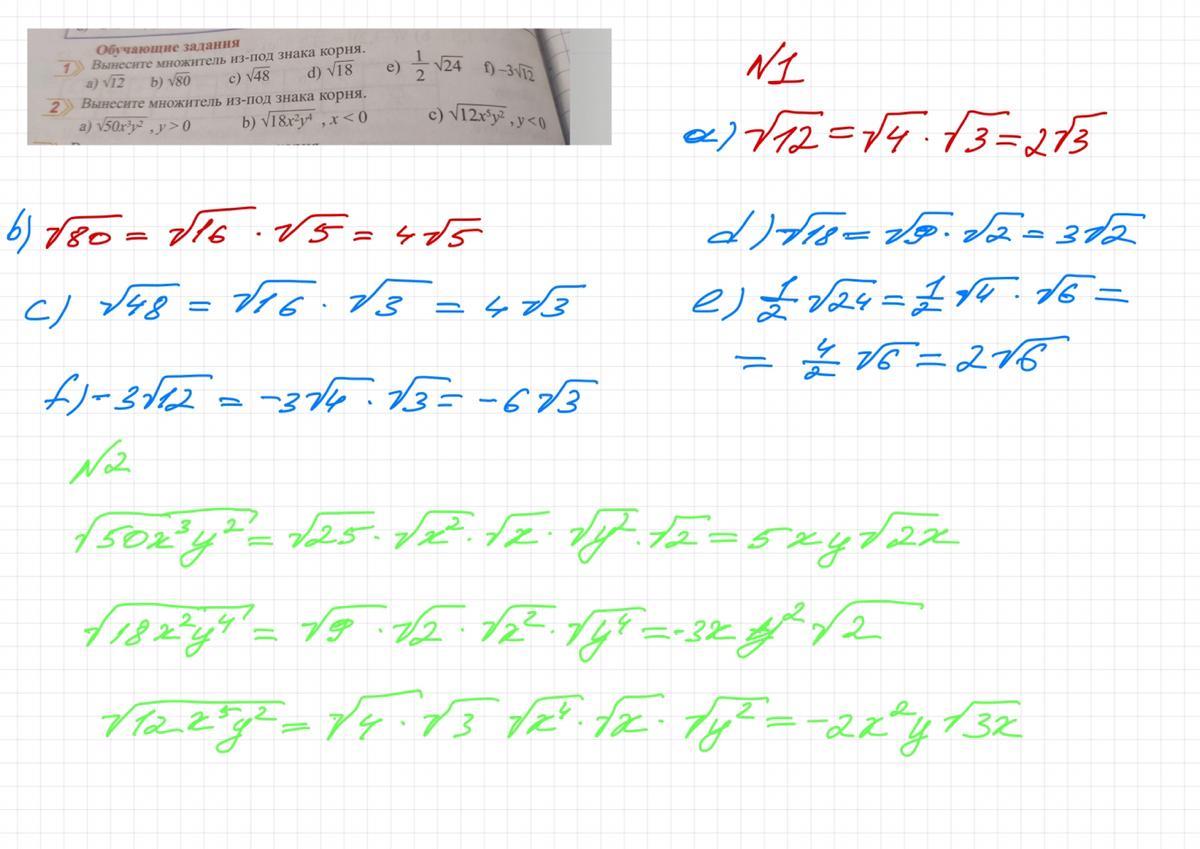 Обучающие задания
1 Вынесите множитель из-под знака корня.
a) √12 b) √80 c) √48 d) √18 e) 1/2 √24 f) -3√12
2 Вынесите множитель из-под знака корня.
a) √50x³y² , y > 0 b) √18x²y⁴ , x < 0 c) √12x⁵y² , y < 0
N1
a) √12 = √4 · √3 = 2√3
b) √80 = √16 · √5 = 4√5
c) √48 = √16 · √3 = 4√3
d) √18 = √9 · √2 = 3√2
e) 1/2 √24 = 1/2 √4 · √6 =
= 4/2 √6 = 2√6
f) -3√12 = -3√4 · √3 = -6√3
N2
√50x³y² = √25 · √x² · √x · √y² · √2 = 5xy√2x
√18x²y⁴ = √9 · √2 · √x² · √y⁴ = -3xy²√2
√12x⁵y² = √4 · √3 √x⁴ · √x · √y² = -2x²y√3x